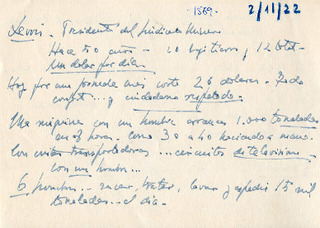 -1589- 2/11/22
Lewis. Presidente del Sindicato Minero
Hace 50 años - 10 hijos tuvieron, y 12 total.
Un dolar por día.
Hoy por una jornada más corta 26 dolares. Radio
confort... y ciudadano respetado.
Una máquina con un hombre arranca 1.000 toneladas
en 8 horas. Como 30 a 40 haciendo a mano.
Con cintas transportadoras ... circuitos de television
con un hombre...
6 hombres... sacar, triturar, lavar y expedir 15 mil
toneladas.. al día.